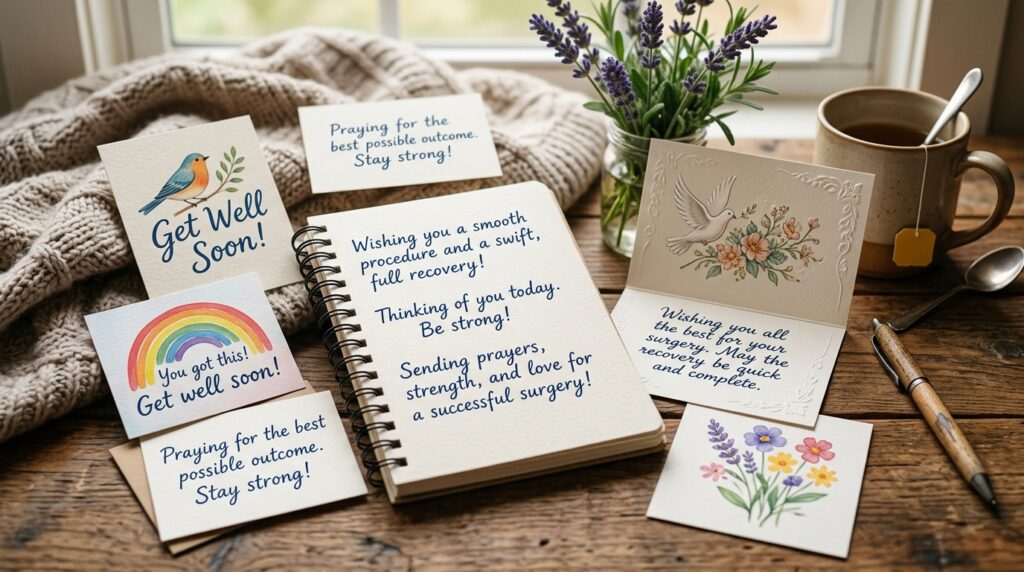 Praying for the
best possible outcome.
Stay strong!
Get Well
Soon!
You got this!
Get well soon!
Praying for the best
possible outcome.
Stay strong!
Wishing you a smooth
procedure and a swift,
full recovery!
Thinking of you today.
Be strong!
Sending prayers,
strength, and love for
a successful surgery!
Wishing you all
the best for your
surgery. May the
recovery be quick
and complete.